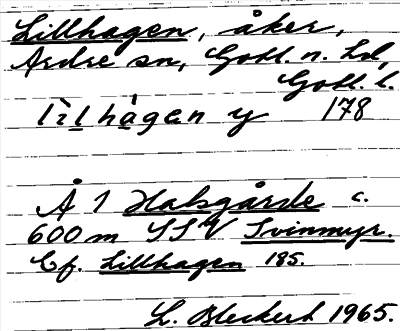 Lillhagen, åker,
Ardre sn, Gotl. n. hd,
Gotl. l.
lìl hágen y 178
Å 1 Halsgårde c.
600 m SSV Svinmyr.
Cf. Lillhagen 185.
L. Bleckert 1965.